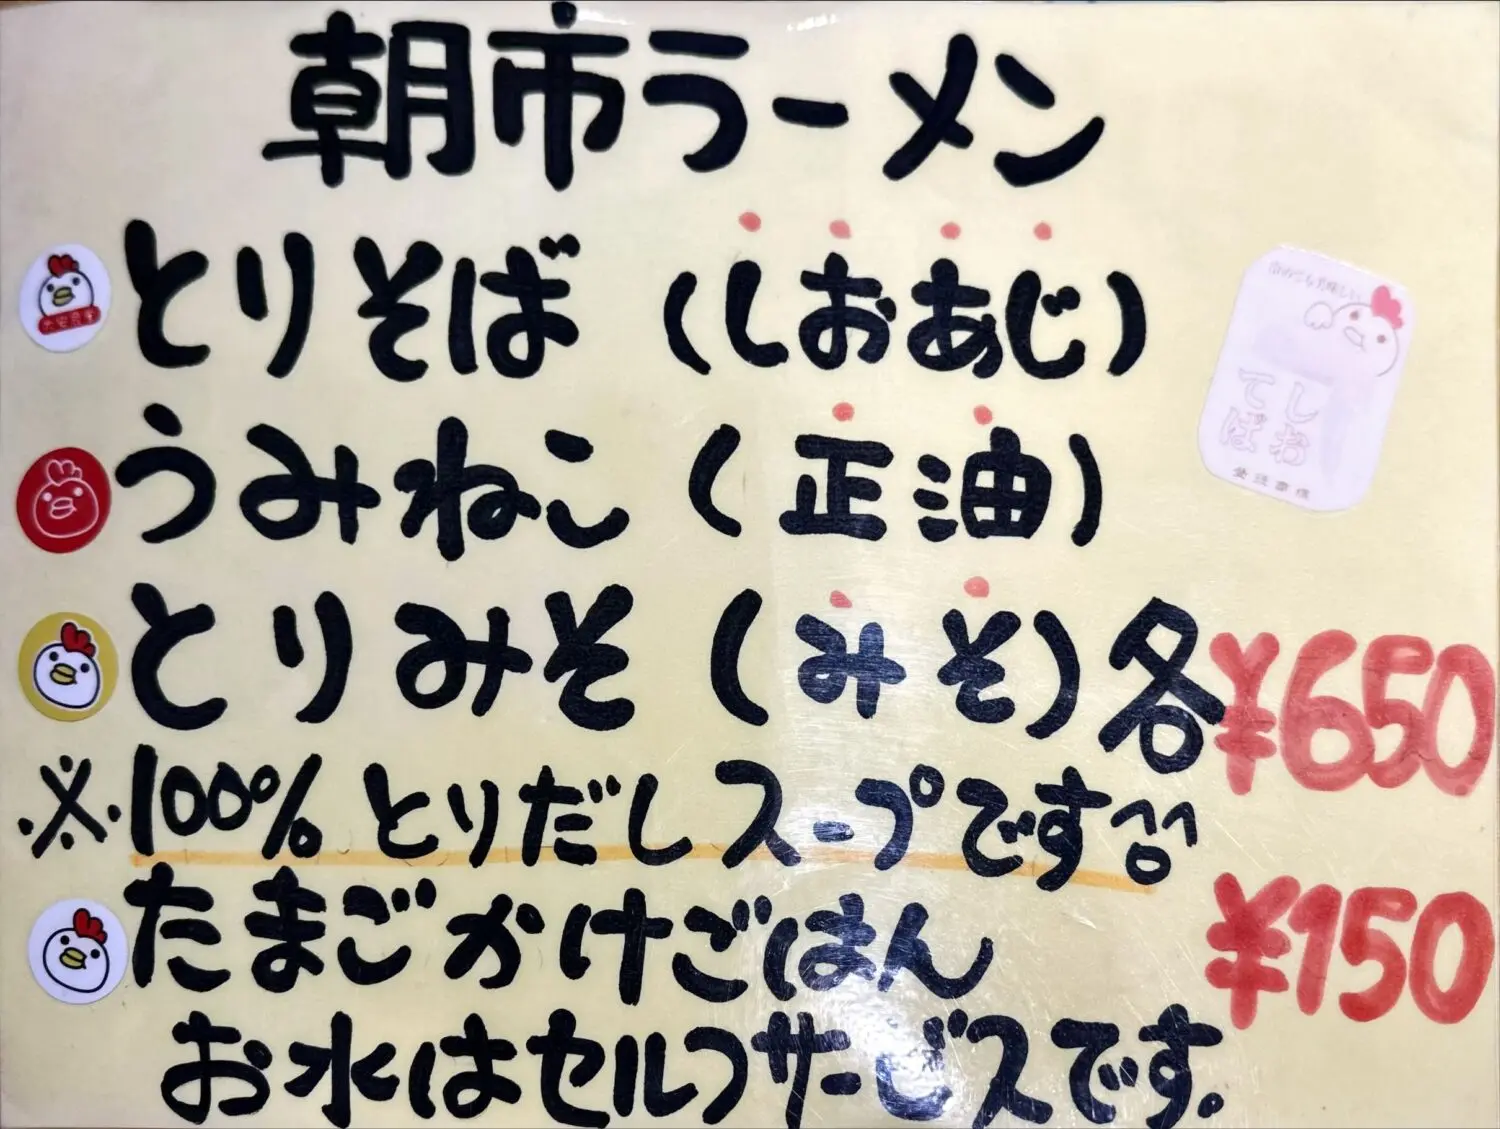 朝市ラーメン
とりそば (しおあじ)
うみねこ (正油)
とりみそ (みそ) 各 ¥650
※100% とりだしスープです^o^
たまごかけごはん ¥150
お水はセルフサービスです.
しお
てば